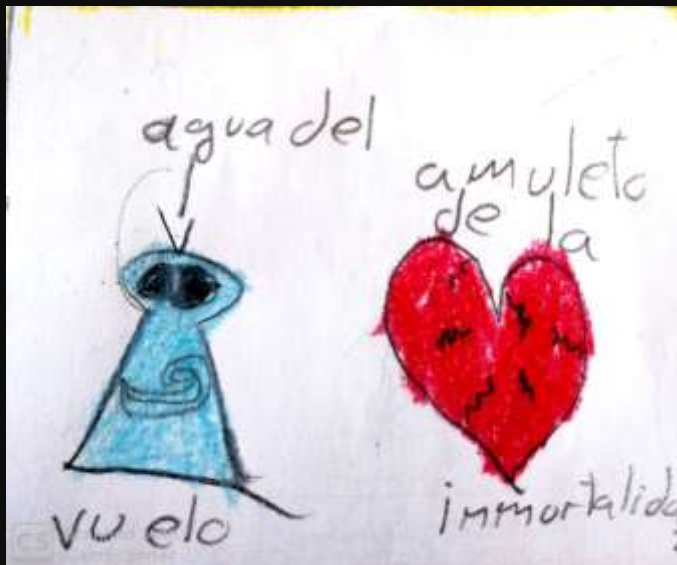 agua del
vuelo
amuleto
de la
immortalida
CS